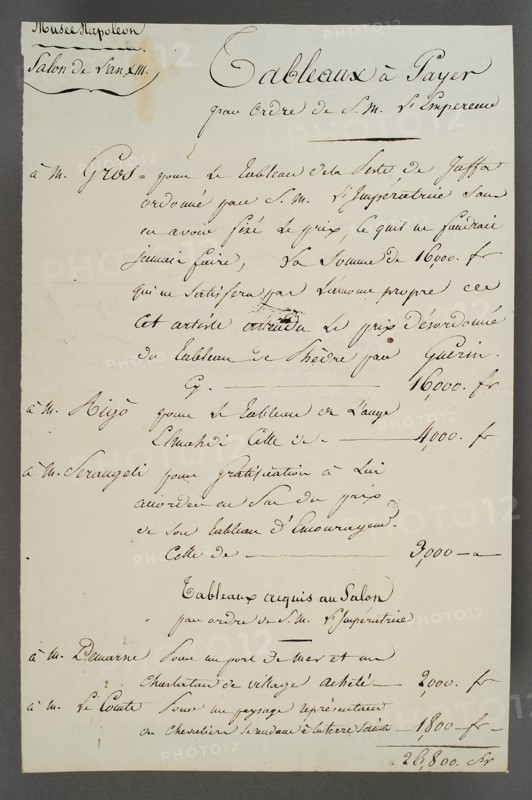 Musée Napoléon
Salon de l'an XIII.
Tableaux à Payer
par ordre de S. M. L'Empereur
à M. Gros = pour le Tableau de la Peste de Jaffa
ordonné par S. M. L'Impératrice sans
en avoir fixé le prix, ce qu'il ne faudrait
jamais faire, La Somme de 16,000. fr
qui ne satisfera pas l'amour propre de
cet artiste attendu le prix désordonné
du Tableau de Phèdre par Guérin.
Cy. 16,000. fr
à M. Rigo pour le Tableau de l'ange
Elmahdi Celle de 4,000. fr
à M. Serangeli pour gratification à Lui
accorder en Sus du prix
de son tableau d'Encouragemt.
Celle de 3,000
Tableaux acquis au Salon
par ordre de S. M. L'Impératrice
à M. Demarne Pour un port de mer et un
Charlatan de village acheté 2,000. fr
à M. Le Comte Pour un paysage représentant
un Chevalier se rendant à la terre Sainte 1,800 fr
26,800. fr
PHOTO12